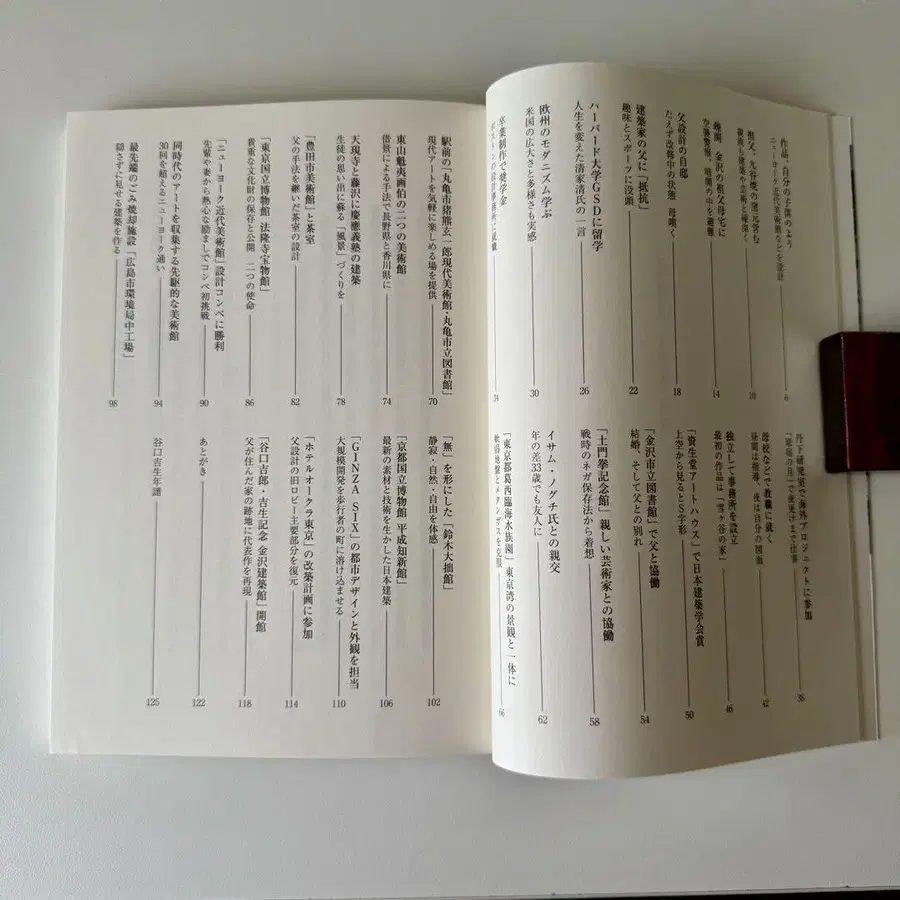 作品、自分の子供のよう
ニューヨーク近代美術館などを設計
6
祖父、九谷焼の窯元営む
親族も建築や芸術と縁深く
10
疎開 金沢の祖父母宅に
空襲警報、暗闇の中を避難
14
父設計の自邸
たえず改修中の状態 母嘆く
18
建築家の父に「抵抗」
趣味とスポーツに没頭
22
ハーバード大学GSDに留学
人生を変えた清家清氏の一言
26
欧州のモダニズム学ぶ
米国の広大さと多様さも実感
30
卒業制作で奨学金
ボストンの設計事務所に就職
34
丹下研究室で海外プロジェクトに参加
38
母校などで教職に就く
昼間は指導、夜は自分の図面
42
独立して事務所を設立
最初の作品は「雪ヶ谷の家」
46
「資生堂アートハウス」で日本建築学会賞
上空から見るとS字形
50
「金沢市立図書館」で父と協働
結婚、そして父との別れ
54
「土門拳記念館」親しい芸術家との協働
戦時のネガ保存法から着想
58
イサム・ノグチ氏との親交
年の差33歳でも友人に
62
「東京都葛西臨海水族園」東京湾の景観と一体に
軟弱地盤とメタンガスを克服
66
駅前の「丸亀市猪熊弦一郎現代美術館・丸亀市立図書館」
現代アートを気軽に楽しめる場を提供
70
東山魁夷画伯の二つの美術館
借景による手法で長野県と香川県に
74
天現寺と藤沢に慶應義塾の建築
生徒の思い出に蘇る「風景」づくりを
78
「豊田市美術館」と茶室
父の手法を継いだ茶室の設計
82
「東京国立博物館 法隆寺宝物館」
貴重な文化財の保存と公開 二つの使命
86
「ニューヨーク近代美術館」設計コンペに勝利
先輩や妻から熱心な励ましでコンペ初挑戦
90
同時代のアートを収集する先駆的な美術館
30回を超えるニューヨーク通い
94
最先端のごみ焼却施設「広島市環境局中工場」
隠さずに見せる建築を作る
98
「無」を形にした「鈴木大拙館」
静寂・自然・自由を体感
102
「京都国立博物館 平成知新館」
最新の素材と技術を生かした日本建築
106
「GINZA SIX」の都市デザインと外観を担当
大規模開発を歩行者の町に溶け込ませる
110
「ホテルオークラ東京」の改築計画に参加
父設計の旧ロビー主要部分を復元
114
「谷口吉郎・吉生記念 金沢建築館」開館
父が住んだ家の跡地に代表作を再現
118
あとがき
122
谷口吉生年譜
125